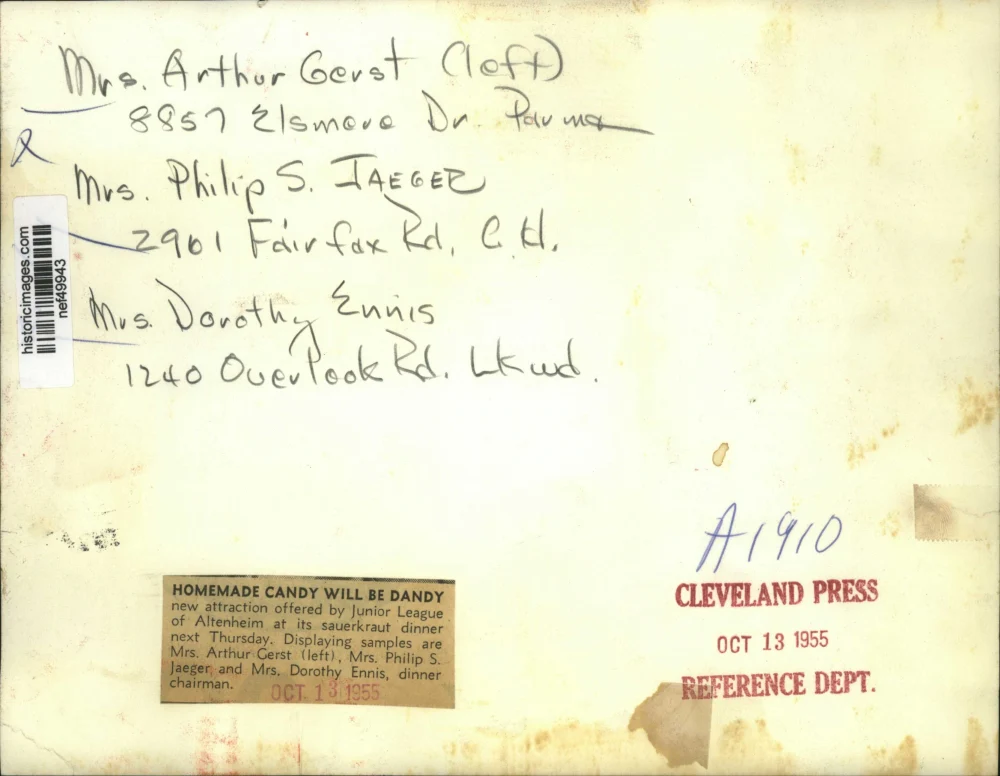 Mrs. Arthur Gerst (left)
8857 Elsmere Dr. Parma
Mrs. Philip S. JAEGER
2961 Fairfax Rd, C. H.
Mrs. Dorothy Ennis
1240 Overlook Rd. Lkwd.
historicimages.com
nef49943
A1910
CLEVELAND PRESS
OCT 13 1955
REFERENCE DEPT.
HOMEMADE CANDY WILL BE DANDY
new attraction offered by Junior League
of Altenheim at its sauerkraut dinner
next Thursday. Displaying samples are
Mrs. Arthur Gerst (left), Mrs. Philip S.
Jaeger and Mrs. Dorothy Ennis, dinner
chairman.
OCT. 13 1955